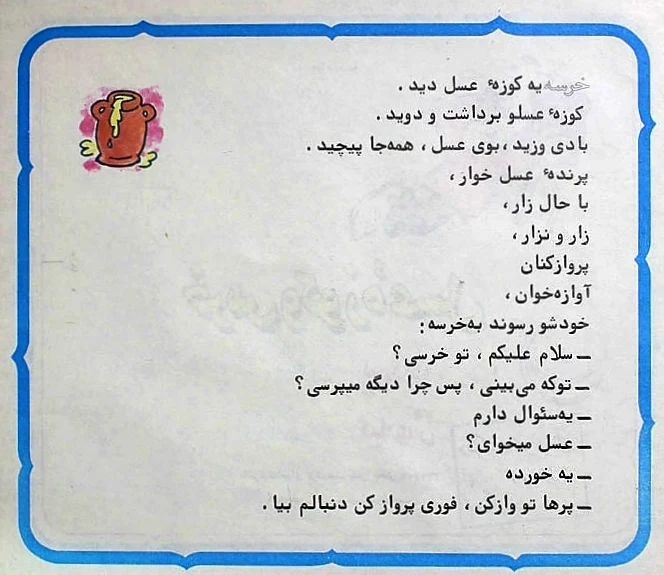 خرسه یه کوزهٔ عسل دید .
کوزهٔ عسلو برداشت و دوید .
بادی وزید ، بوی عسل ، همه‌جا پیچید .
پرندهٔ عسل خوار ،
با حال زار ،
زار و نزار ،
پروازکنان
آوازه‌خوان ،
خودشو رسوند به‌خرسه :
ــ سلام علیکم ، تو خرسی ؟
ــ توکه می‌بینی ، پس چرا دیگه میپرسی ؟
ــ یه‌سئوال دارم
ــ عسل میخوای ؟
ــ یه خورده
ــ پرها تو وازکن ، فوری پرواز کن دنبالم بیا .